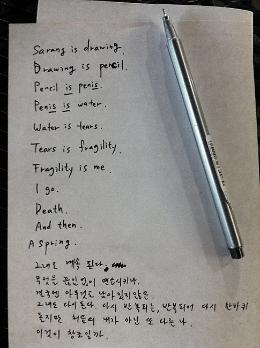 Sarang is drawing.
Drawing is pencil.
Pencil is penis.
Penis is water.
Water is tears.
Tears is fragility.
Fragility is me.
I go.
Death.
And then.
A spring.
그녀도 계속 된다.
무엇을 끊임없이 연소시키나.
결국엔 아무것도 남아있지않은
그녀도 다이든다. 다시 반복되는, 반복되어 다시 한바퀴
돌지만 처음의 내가 아닌 또 다른 나.
이것이 창조일까.